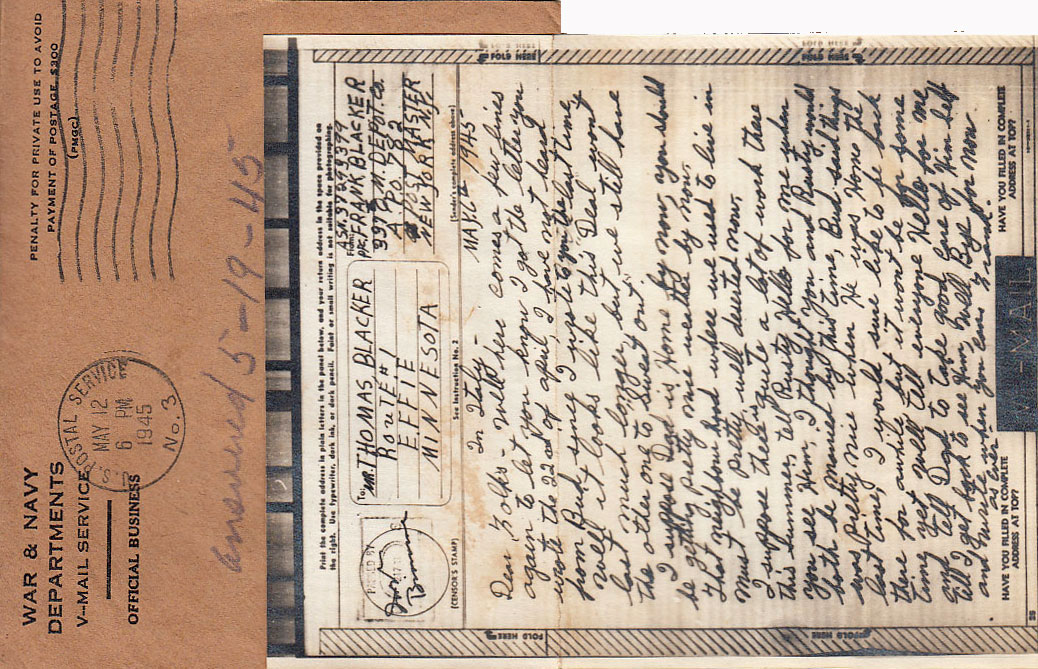 WAR & NAVY
DEPARTMENTS
V--MAIL SERVICE
OFFICIAL BUSINESS
U.S. POSTAL SERVICE
MAY 12
6 PM
1945
No. 3
PENALTY FOR PRIVATE USE TO AVOID
PAYMENT OF POSTAGE, $300
(PMGC)
Answered 5-19-45
FOLD HERE
FOLD HERE
Print the complete address in plain letters in the panel below, and your return address in the space provided on
the right. Use typewriter, dark ink, or dark pencil. Faint or small writing is not suitable for photographing.
PASSED BY
(CENSOR'S STAMP)
To: MR. THOMAS BLACKER
ROUTE #1
EFFIE
MINNESOTA
See Instruction No. 2
From:
ASN. 37299379
PFC. FRANK BLACKER
A.P.O. 782
% POST MASTER
NEW YORK N.Y.
(Sender's complete address above)
In Italy - MAY. 6th 1945
Dear Folks - well her comes a few lines
again to let you know I got the letter you
wrote the 22nd of april, I have not heard
from Bud since I wrote to you the last time,
well it looks like this Deal won't
last much longer, but we still have
the other one to sweat out.
I suppose Dad is Home by now, you should
be getting pretty nice weather by now.
that neighbour Hood where we used to live in
must be pretty well deserted now,
I suppose their is quite a lot of work there
this summer, tell Rusty Hello for me when
you see Him, I thought you and Rusty would
both be married by this time, Bud said things
was pretty nice when He was Home the
last time, I would sure like to be back
there for awhile but it wont be for some
time yet, well tell everyone Hello for me
and tell Dad to take good Care of Him Self
till I get back to see Him, well Bye for now
and write when you can
as ever
HAVE YOU FILLED IN COMPLETE
ADDRESS AT TOP?
V--MAIL
HAVE YOU FILLED IN COMPLETE
ADDRESS AT TOP?
FOLD HERE
FOLD HERE